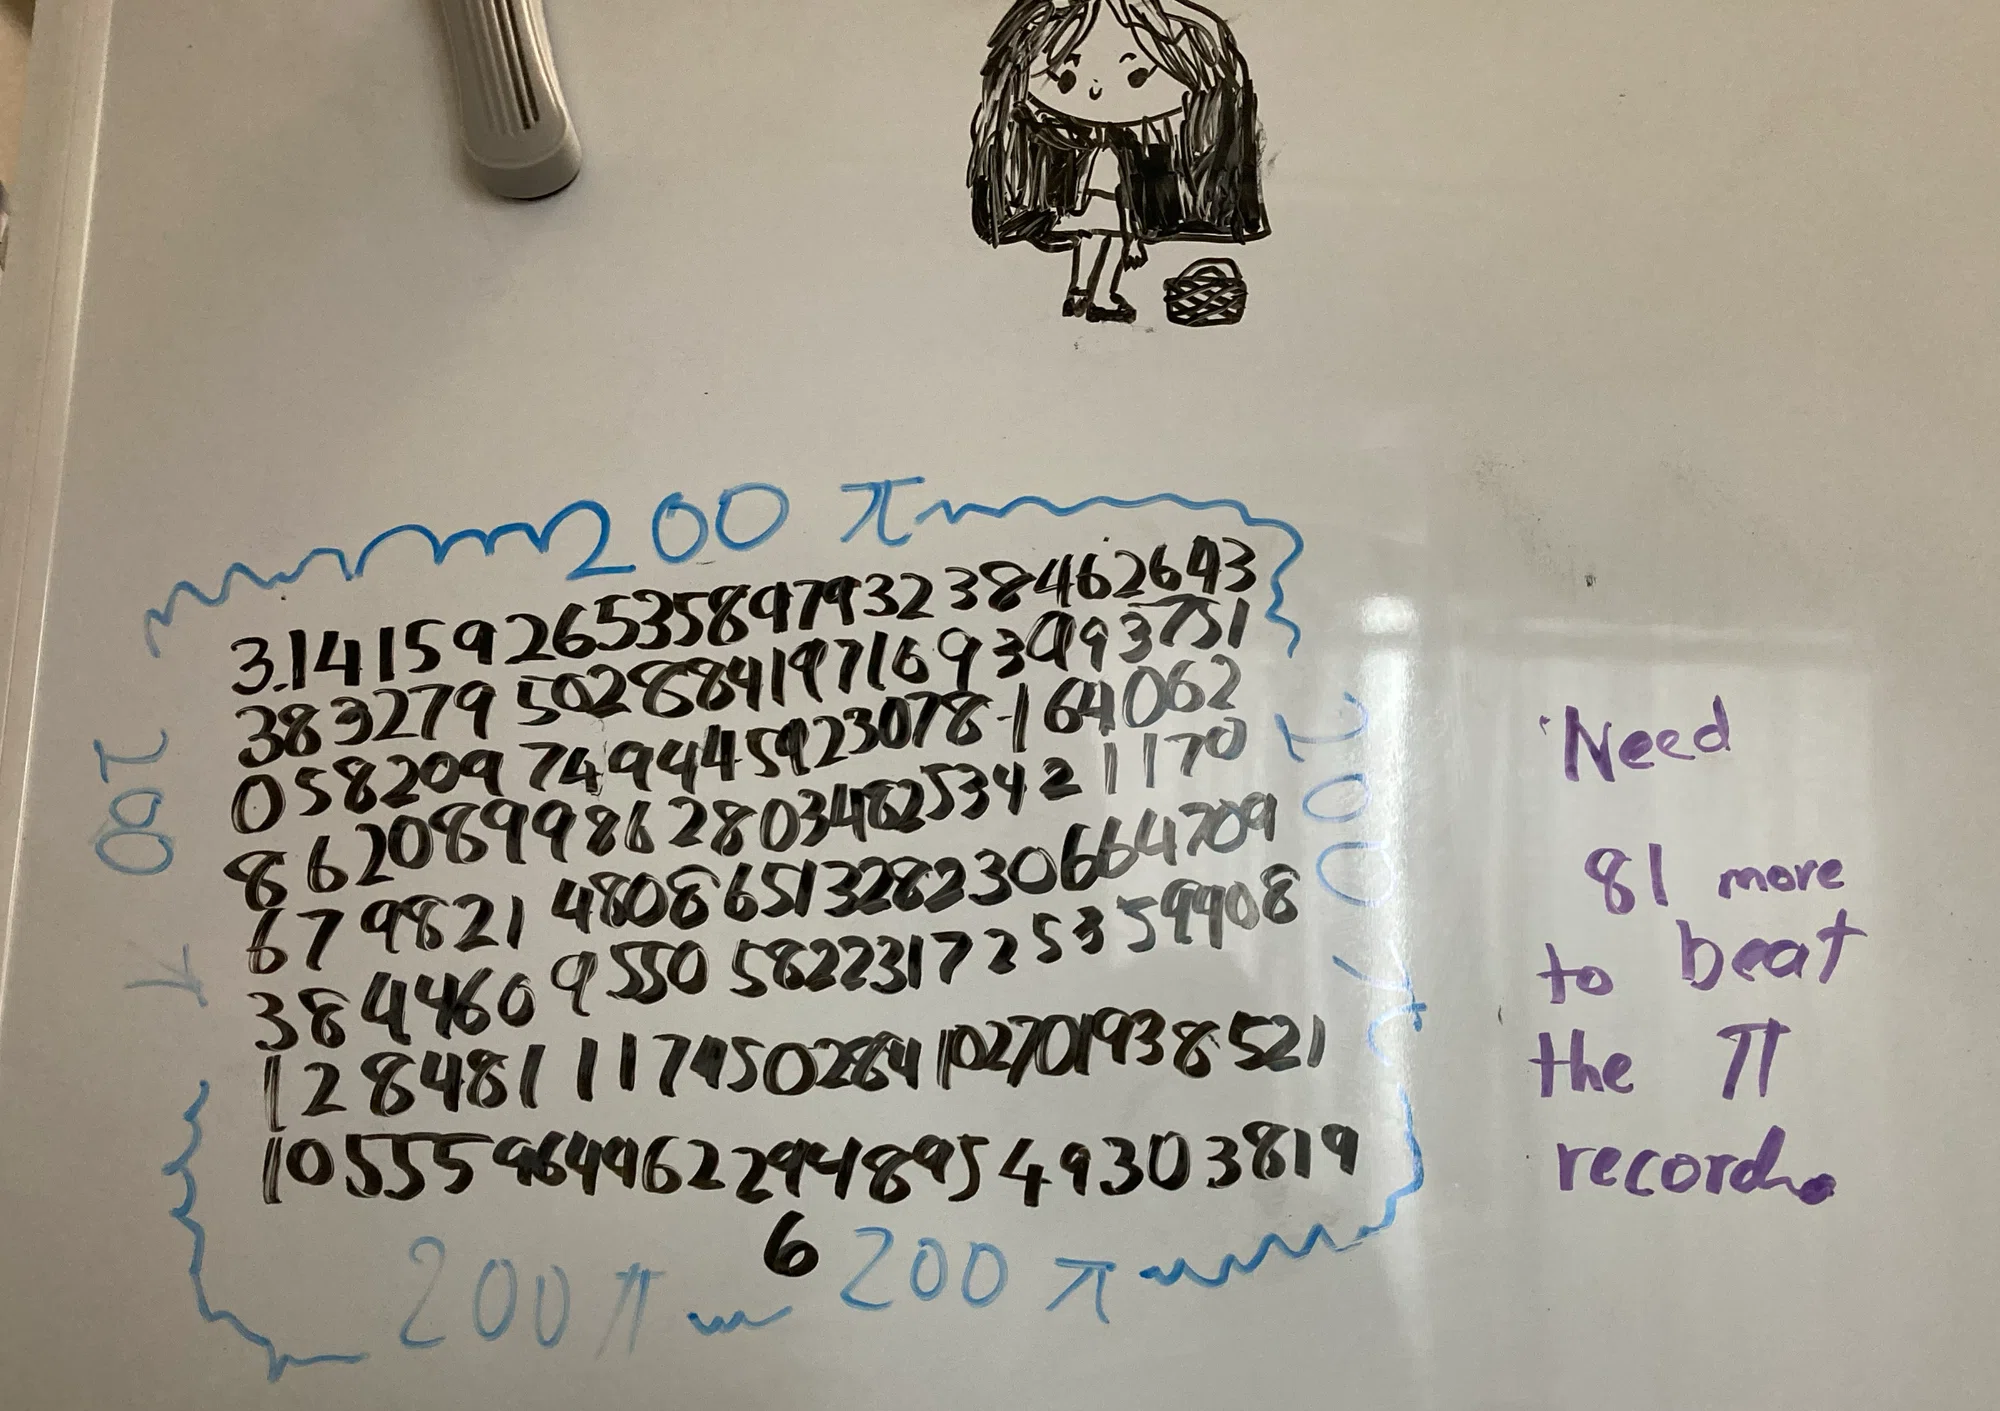 200 π
3.141592653589793238462643
3832795028841971693993751
058209749445923078164062
862089986280348253421170
6798214808651328230664709
3844609550582231725359408
128481117450284102701938521
1055596446229489549303819
6
200 π
200 π
200 π 200 π
Need
81 more
to beat
the π
record.